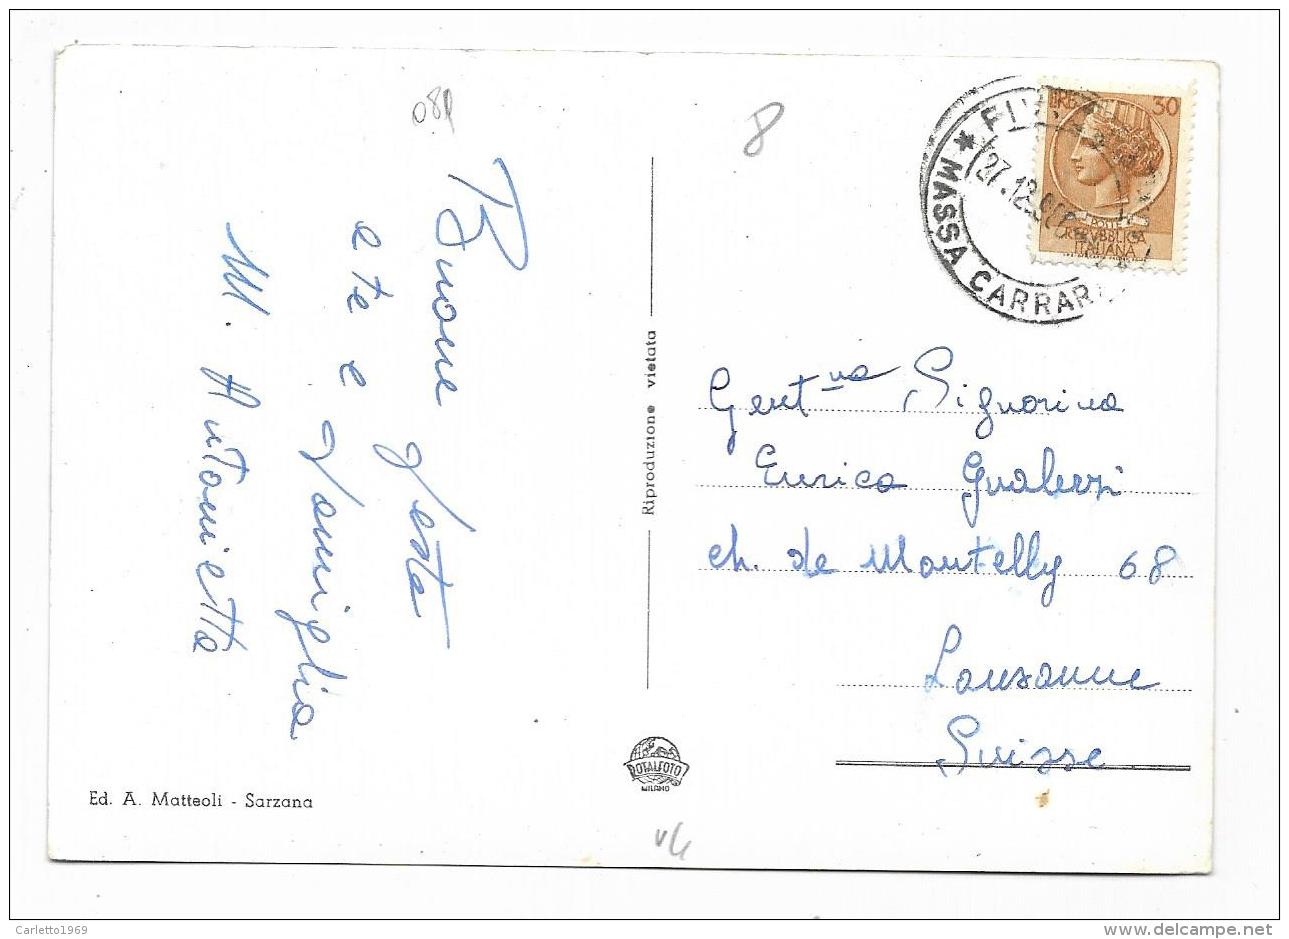 08p
8
Buone feste
a te e famiglia
M. Antonietta
Riproduzione vietata
LIRE 30
POSTE
REPVBBLICA
ITALIANA
MASSA CARRARA
27.12
Gent.ma Signorina
Enrica Gualezzi
ch. de Montelly 68
Lausanne
Suisse
ROTALFOTO
MILANO
Ed. A. Matteoli - Sarzana
Carletto1969
www.delcampe.net